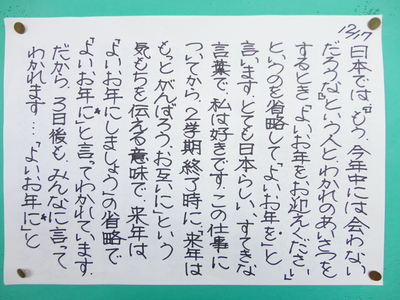 12/17
日本では、「もう、今年中には会わない
だろうな」という人とわかれのあいさつを
するとき、「よいお年をお迎えください」
というのを省略して「よいお年を」と
言います。とても日本らしい、すてきな
言葉で、私は好きです。この仕事に
ついてから、2学期終了時に、「来年は
もっとがんばろう、お互いに」という
気もちを伝える意味で、来年は
「よいお年にしましょう」の省略で
「よいお年に」と言ってわかれています。
だから、3日後も、みんなに言って
わかれます…「よいお年に」と